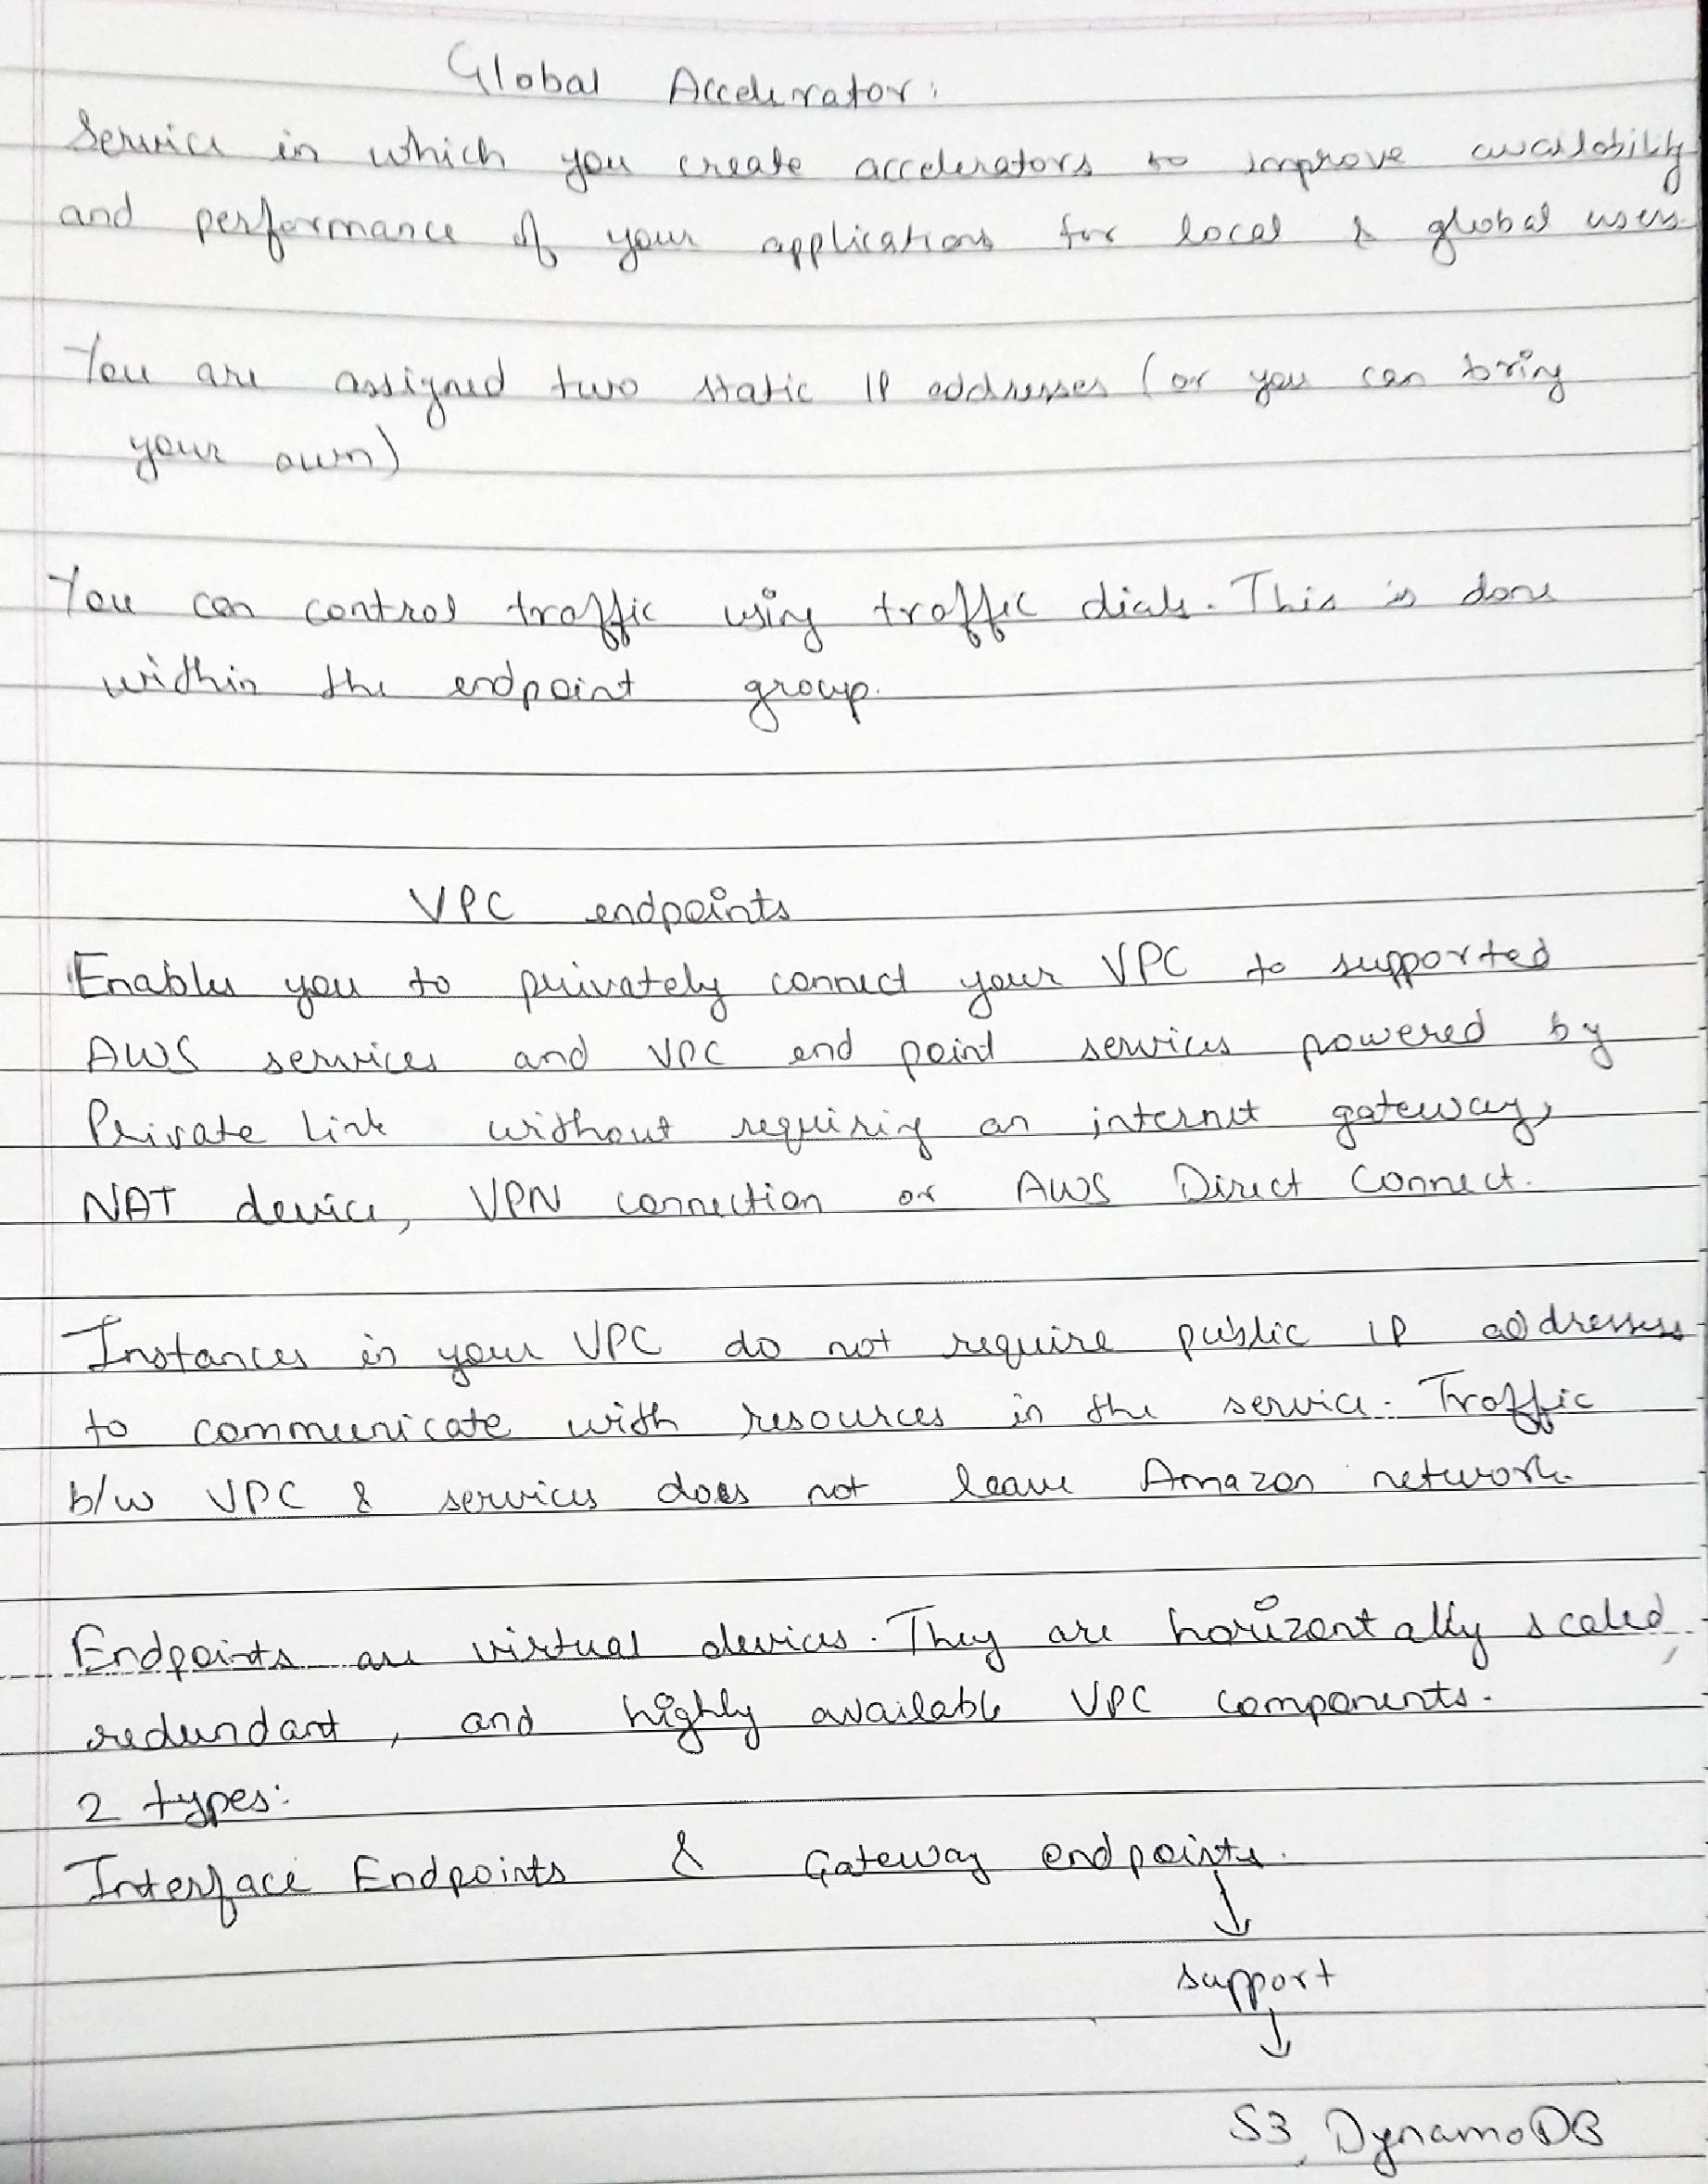 Global Accelerator:
Service in which you create accelerators to improve availability
and performance of your applications for local & global users
You are assigned two static IP addresses (or you can bring
your own)
You can control traffic using traffic dials. This is done
within the endpoint group.
VPC endpoints
Enables you to privately connect your VPC to supported
AWS services and VPC end point services powered by
Private Link without requiring an internet gateway,
NAT device, VPN connection or AWS Direct Connect.
Instances in your VPC do not require public IP addresses
to communicate with resources in the service. Traffic
b/w VPC & services does not leave Amazon network.
Endpoints are virtual devices. They are horizontally scaled,
redundant, and highly available VPC components.
2 types:
Interface Endpoints & Gateway endpoints.
support
S3, DynamoDB